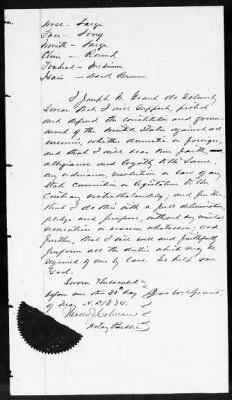 Nose - Large
Face - Long
Mouth - Large
Chin - Round
Forehead - Medium
Hair - Dark Brown
I Joseph W. do Solemnly
Swear that I will Support, protect
and defend the constitution and govern-
ment of the United States against all
enemies, whether domestic or foreign,
and that I will bear true faith,
allegiance and loyalty to the Same,
any ordinance, resolution or law of any
State Convention or Legislature to the
Contrary notwithstanding; and further
that I do this with a full determination
pledge and purpose, without any mental
reservation or evasion whatsoever; and
further, that I will well and faithfully
perform all the duties which may be
required of me by law. So help me
God.
Sworn
before me this day
of May A.D. 1874.
Notary Public